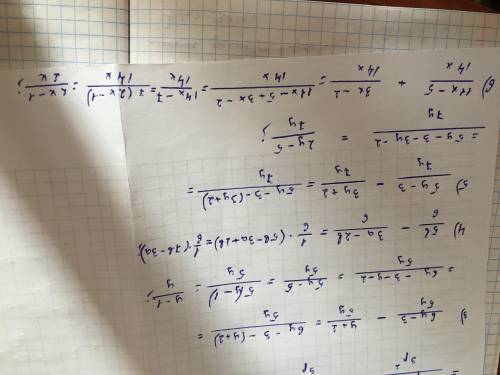 3) \frac{6y-3}{5y} - \frac{y+2}{5y} = \frac{6y-3-(y+2)}{5y} =
= \frac{6y-3-y-2}{5y} = \frac{5y-5}{5y} = \frac{5(y-1)}{5y} = \frac{y-1}{y};
4) \frac{5b}{6} - \frac{3a-2b}{6} = \frac{1}{6}·(5b-3a+2b) = \frac{1}{6}(7b-3a);
5) \frac{5y-3}{7y} - \frac{3y+2}{7y} = \frac{5y-3-(3y+2)}{7y} =
= \frac{5y-3-3y-2}{7y} = \frac{2y-5}{7y};
6) \frac{11x-5}{14x} + \frac{3x-2}{14x} = \frac{11x-5+3x-2}{14x} = \frac{14x-7}{14x} = \frac{7(2x-1)}{14x} = \frac{2x-1}{2x};